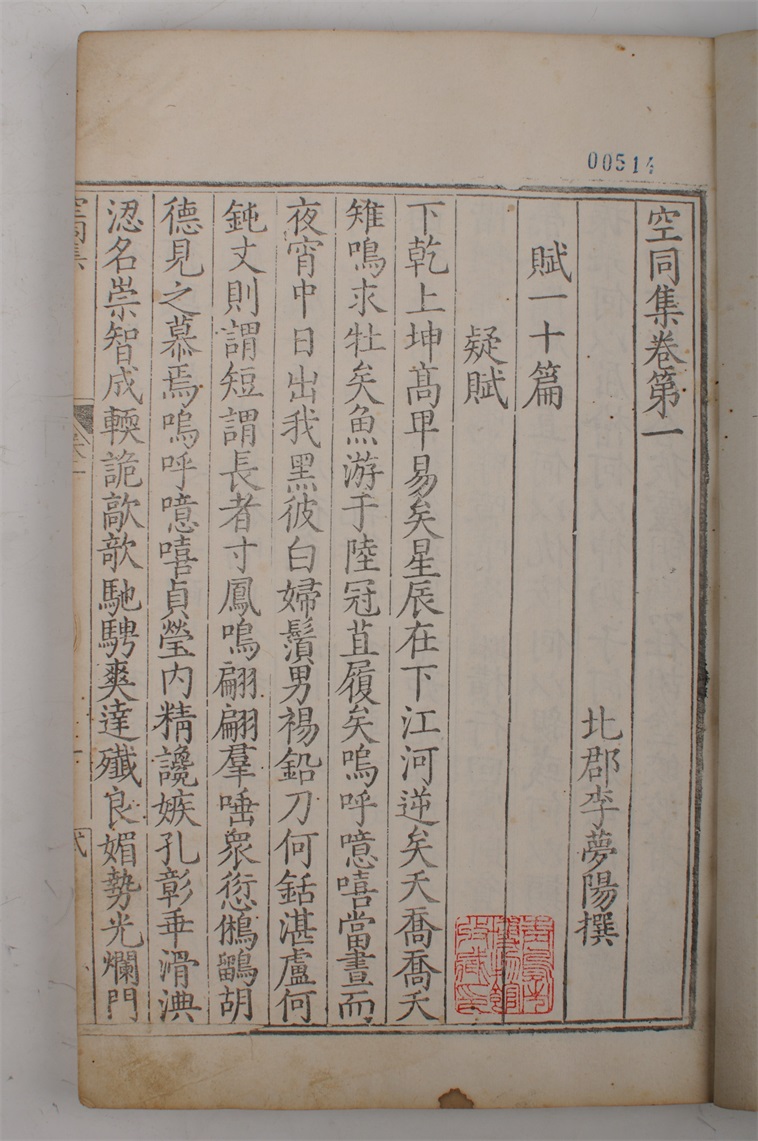 00514
空同集卷第一
北郡李夢陽撰
賦一十篇
疑賦
下乾上坤髙甲易矣星辰在下江河逆矣夭喬喬夭
雉鳴求牡矣魚游于陸冠苴履矣嗚呼噫嘻當晝而
夜宵中日出我黑彼白婦鬚男裼鉛刀何銛湛盧何
鈍丈則謂短謂長者寸鳳鳴翩翩羣唾衆愆鵂鶹胡
德見之慕焉嗚呼噫嘻貞瑩内精讒嫉孔彰垂滑淟
涊名崇智成輭詭歊歆馳騁爽達殲良媚勢光爛門